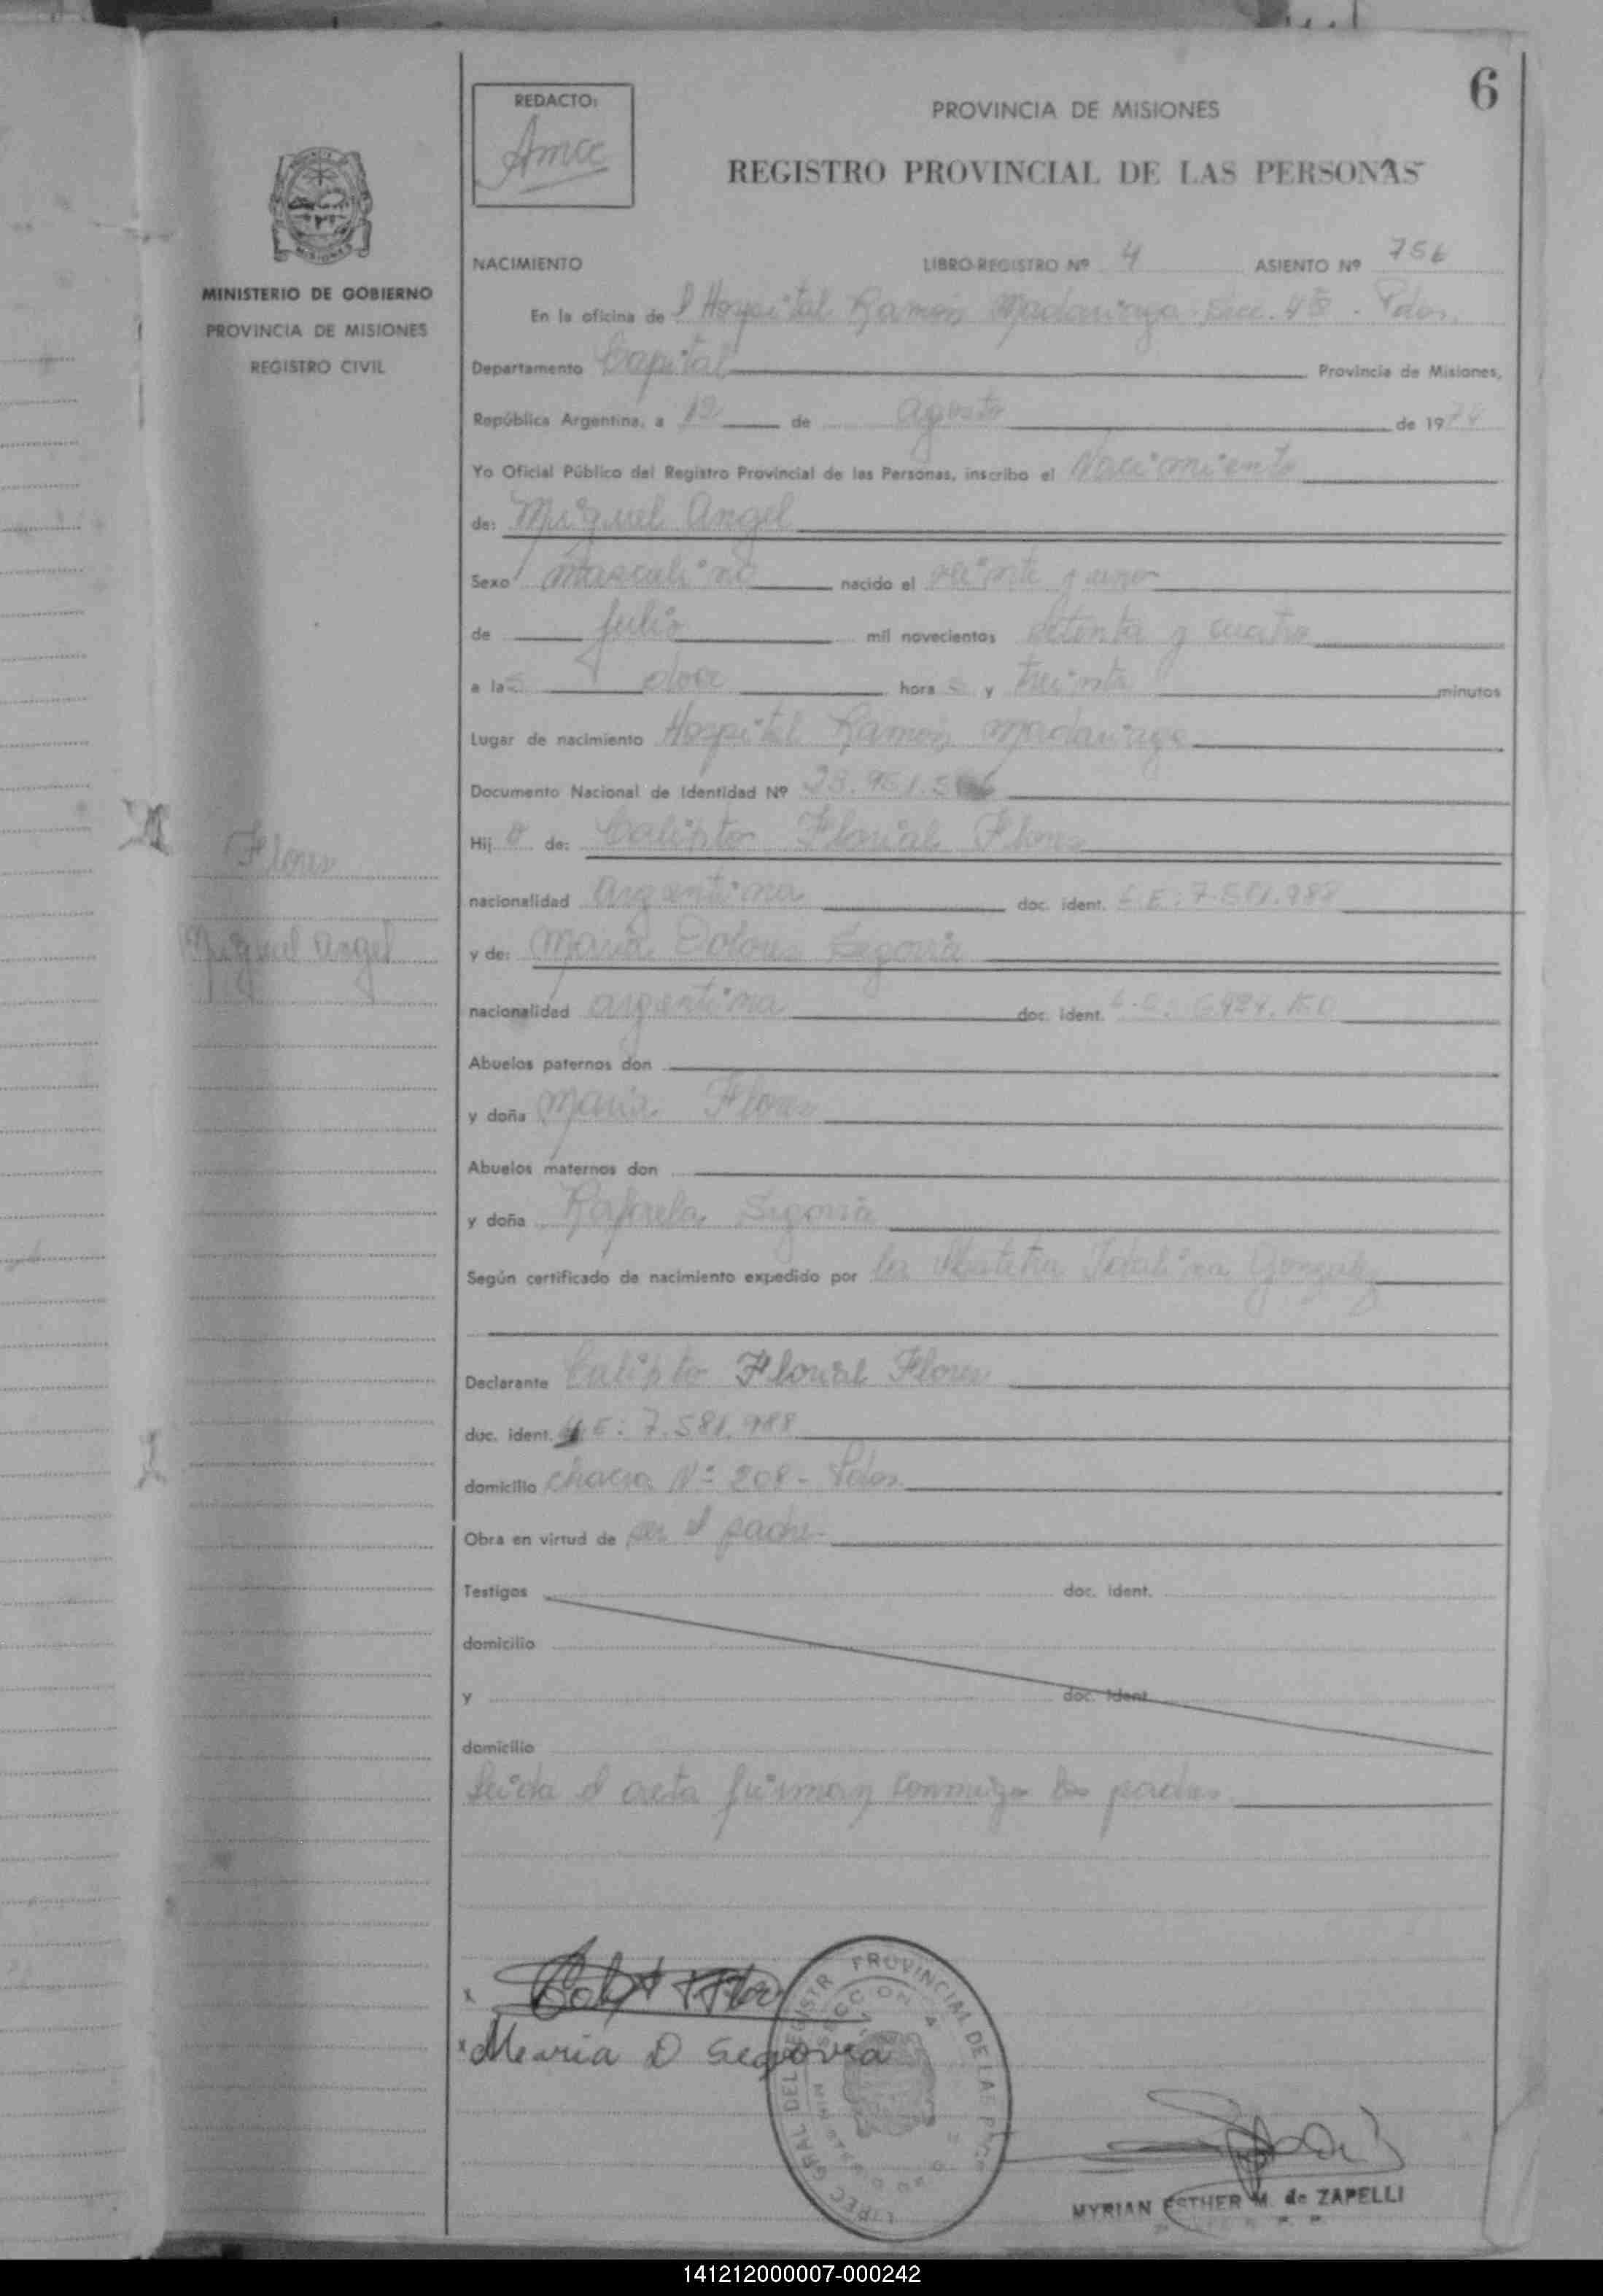 6
REDACTO:
PROVINCIA DE MISIONES
REGISTRO PROVINCIAL DE LAS PERSONAS
MISIONES
MINISTERIO DE GOBIERNO
PROVINCIA DE MISIONES
REGISTRO CIVIL
NACIMIENTO LIBRO-REGISTRO Nº 4 ASIENTO Nº 756
En la oficina de l Hospital Ramón Madariaga Secc. 4ta. Pdas.
Departamento Capital Provincia de Misiones,
República Argentina, a 12 de agosto de 1974
Yo Oficial Público del Registro Provincial de las Personas, inscribo el Nacimiento
de: Miguel Angel
Sexo masculino nacido el veinte y uno
de julio mil novecientos setenta y cuatro
a las doce horas y treinta minutos
Lugar de nacimiento Hospital Ramón Madariaga
Documento Nacional de Identidad Nº
Hijo de: Calixto Florial Flores
nacionalidad argentina doc. ident. L.E: 7.581.988
y de: María Dolores Segovia
nacionalidad argentina doc. ident.
Abuelos paternos don
y doña María Flores
Abuelos maternos don
y doña Rafaela Segovia
Según certificado de nacimiento expedido por la González
Declarante Calixto Florial Flores
duc. ident. L.E: 7.581.988
domicilio chacra Nº 208 - Pdas.
Obra en virtud de ser el padre
Testigos doc. ident.
domicilio
y doc. ident.
domicilio
Leida el acta firman conmigo los padres
Flores
Miguel Angel
x
x Maria D Segovia
MYRIAN ESTHER M. de ZAPELLI
141212000007-000242